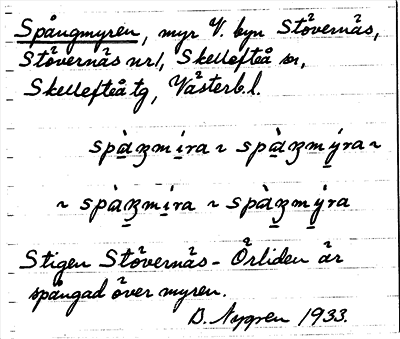 Spångmyren, myr V. byn Stövernäs,
Stövernäs nr 1, Skellefteå sn,
Skellefteå tg, Västerb.l.
spàʒmira ~ spàʒmýra ~
~ spàʒmira ~ spàʒmýra
Stigen Stövernäs - Örliden är
spångad över myren.
D. Nygren 1933.